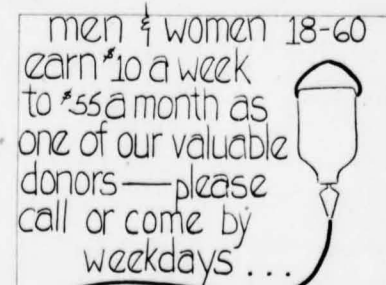 men & women 18-60
earn $10 a week
to $55 a month as
one of our valuable
donors—please
call or come by
weekdays...